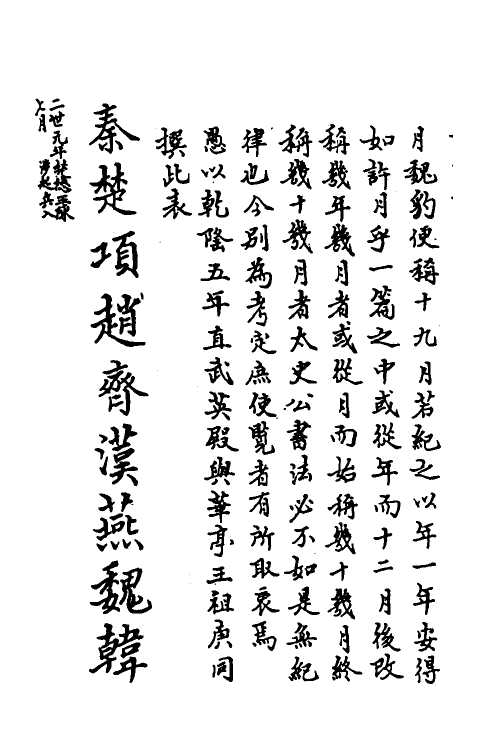 月魏豹便稱十九月若紀之以年一年安得
如許月乎一篇之中或從年而十二月後改
稱幾年幾月者或從月而始稱幾十幾月終
稱幾十幾月者太史公書法必不如是無紀
律也今别為考定庶使覧者有所取衷焉
愚以乾隆五年直武英殿與華亭王祖庚同
撰此表
秦楚項趙齊漢燕魏韓
二世元年
七月